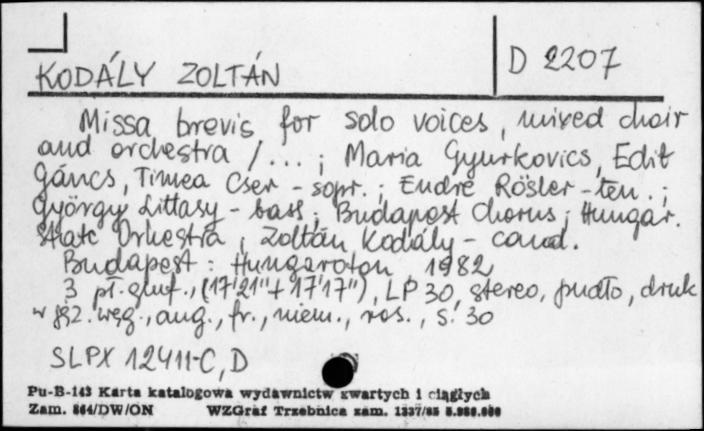 KODÁLY ZOLTÁN
D 2207
Missa brevis for solo voices, mixed choir
and orchestra /...; Maria Gyurkovics, Edit
Gáncs, Timea Cser - sopr.; Endre Rösler - ten.;
György Littasy - bass; Budapest Chorus; Hungar.
State Orkestra, Zoltán Kodály - cond.
Budapest: Hungaroton, 1982
3 pł. gmf., (17'21"+17'17"), LP 30, stereo, pudło, druk
w jęz. węg., ang., fr., niem., ros., s. 30
SLPX 12411-C, D
Pu-B-143 Karta katalogowa wydawnictw zwartych i ciągłych
Zam. 864/DW/ON WZGraf Trzebnica zam. 1337/85